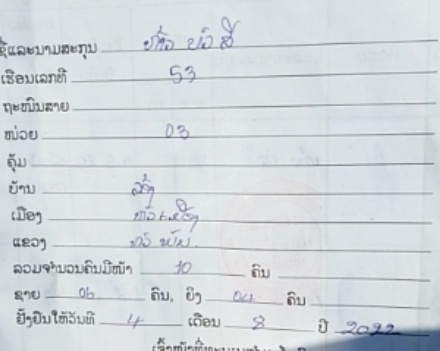 ຊື່ແລະນາມສະກຸນ ທ້າວ ບົວ ສີ
ເຮືອນເລກທີ 53
ຖະໜົນສາຍ
ໜ່ວຍ 03
ຄຸ້ມ
ບ້ານ
ເມືອງ ຫົວເມືອງ
ແຂວງ ຫົວ ພັນ
ລວມຈຳນວນຄົນມີໜ້າ 10 ຄົນ
ຊາຍ 06 ຄົນ, ຍິງ 04 ຄົນ
ຢັ້ງຢືນໃຫ້ວັນທີ 4 ເດືອນ 8 ປີ 2022